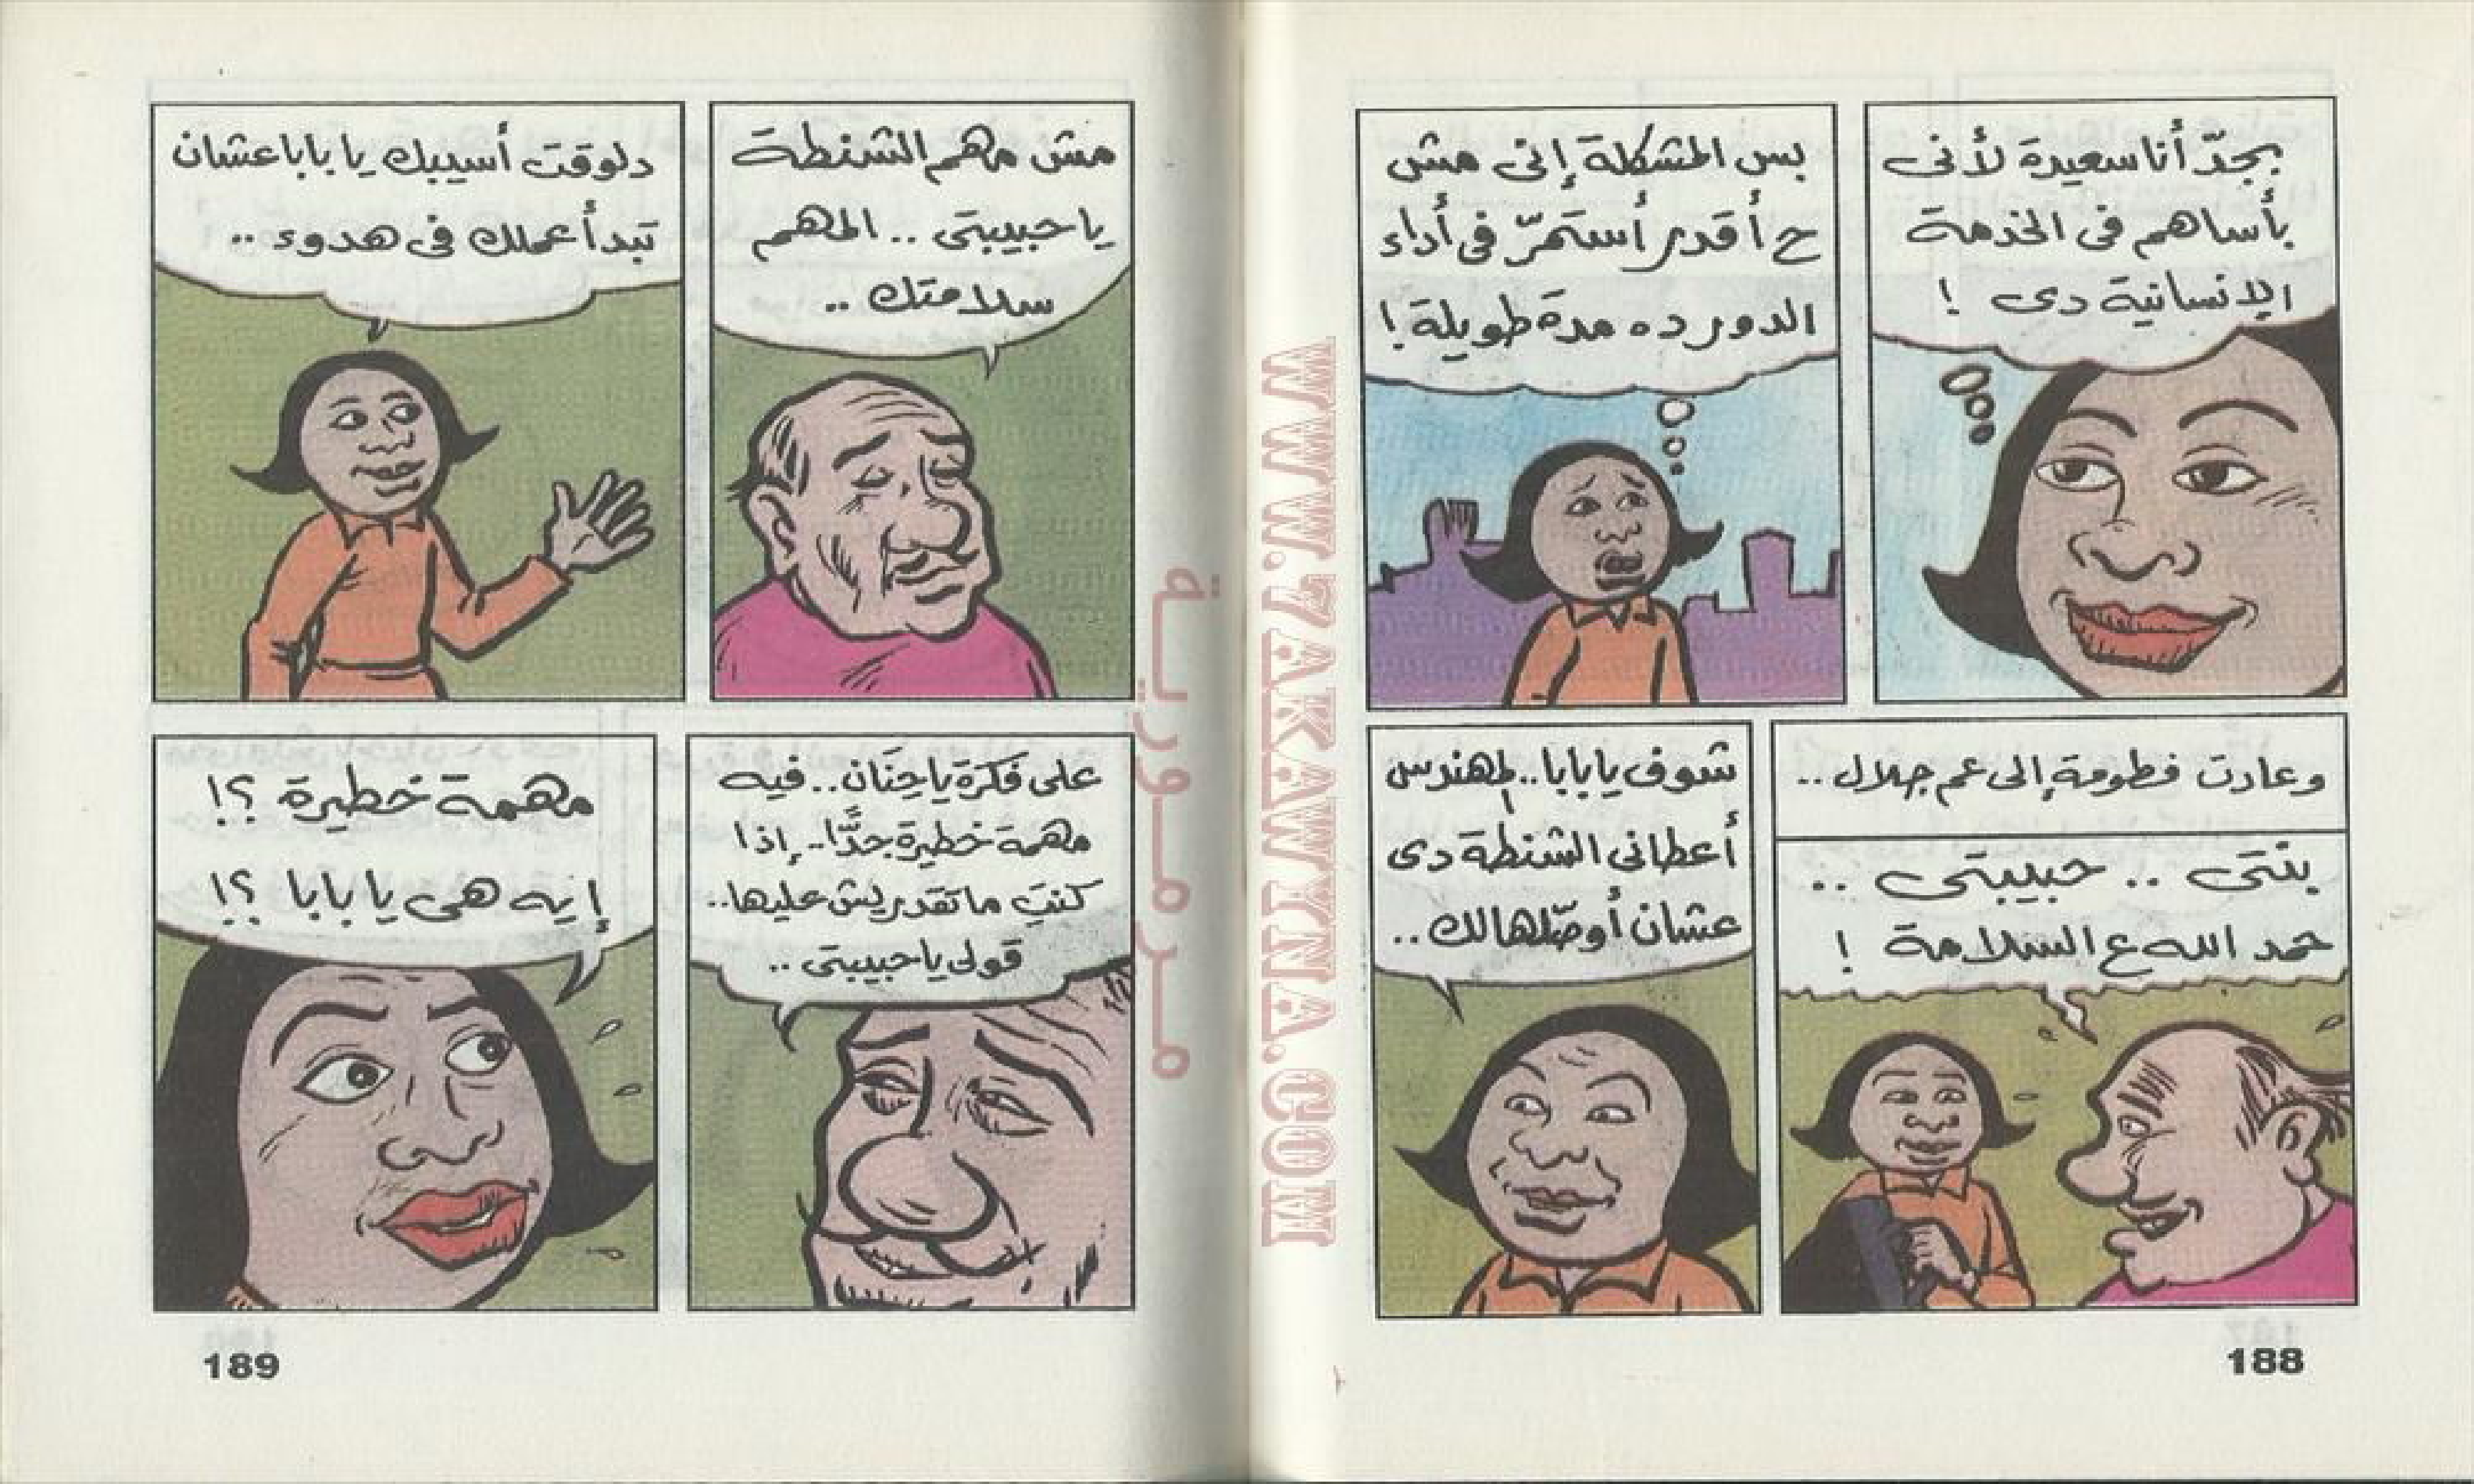 بجدّ أنا سعيدة لأنى
بأساهم فى الخدمة
الإنسانية دى !
بس المشكلة إنى مش
ح أقدر أستمرّ فى أداء
الدور ده مدة طويلة !
وعادت فطومة إلى عم جلال ..
بنتى .. حبيبتى ..
حمد الله ع السلامة !
شوف يا بابا .. المهندس
أعطانى الشنطة دى
عشان أوصّلها لك ..
188
مش مهم الشنطة
يا حبيبتى .. المهم
سلامتك ..
دلوقت أسيبك يا بابا عشان
تبدأ عملك فى هدوء ..
على فكرة يا حِنَان .. فيه
مهمة خطيرة جدًّا .. إذا
كنتِ ما تقدريش عليها ..
قولى يا حبيبتى ..
مهمة خطيرة ؟!
إيه هى يا بابا ؟!
189
WWW.7AKAWYNA.COM
مرمورية